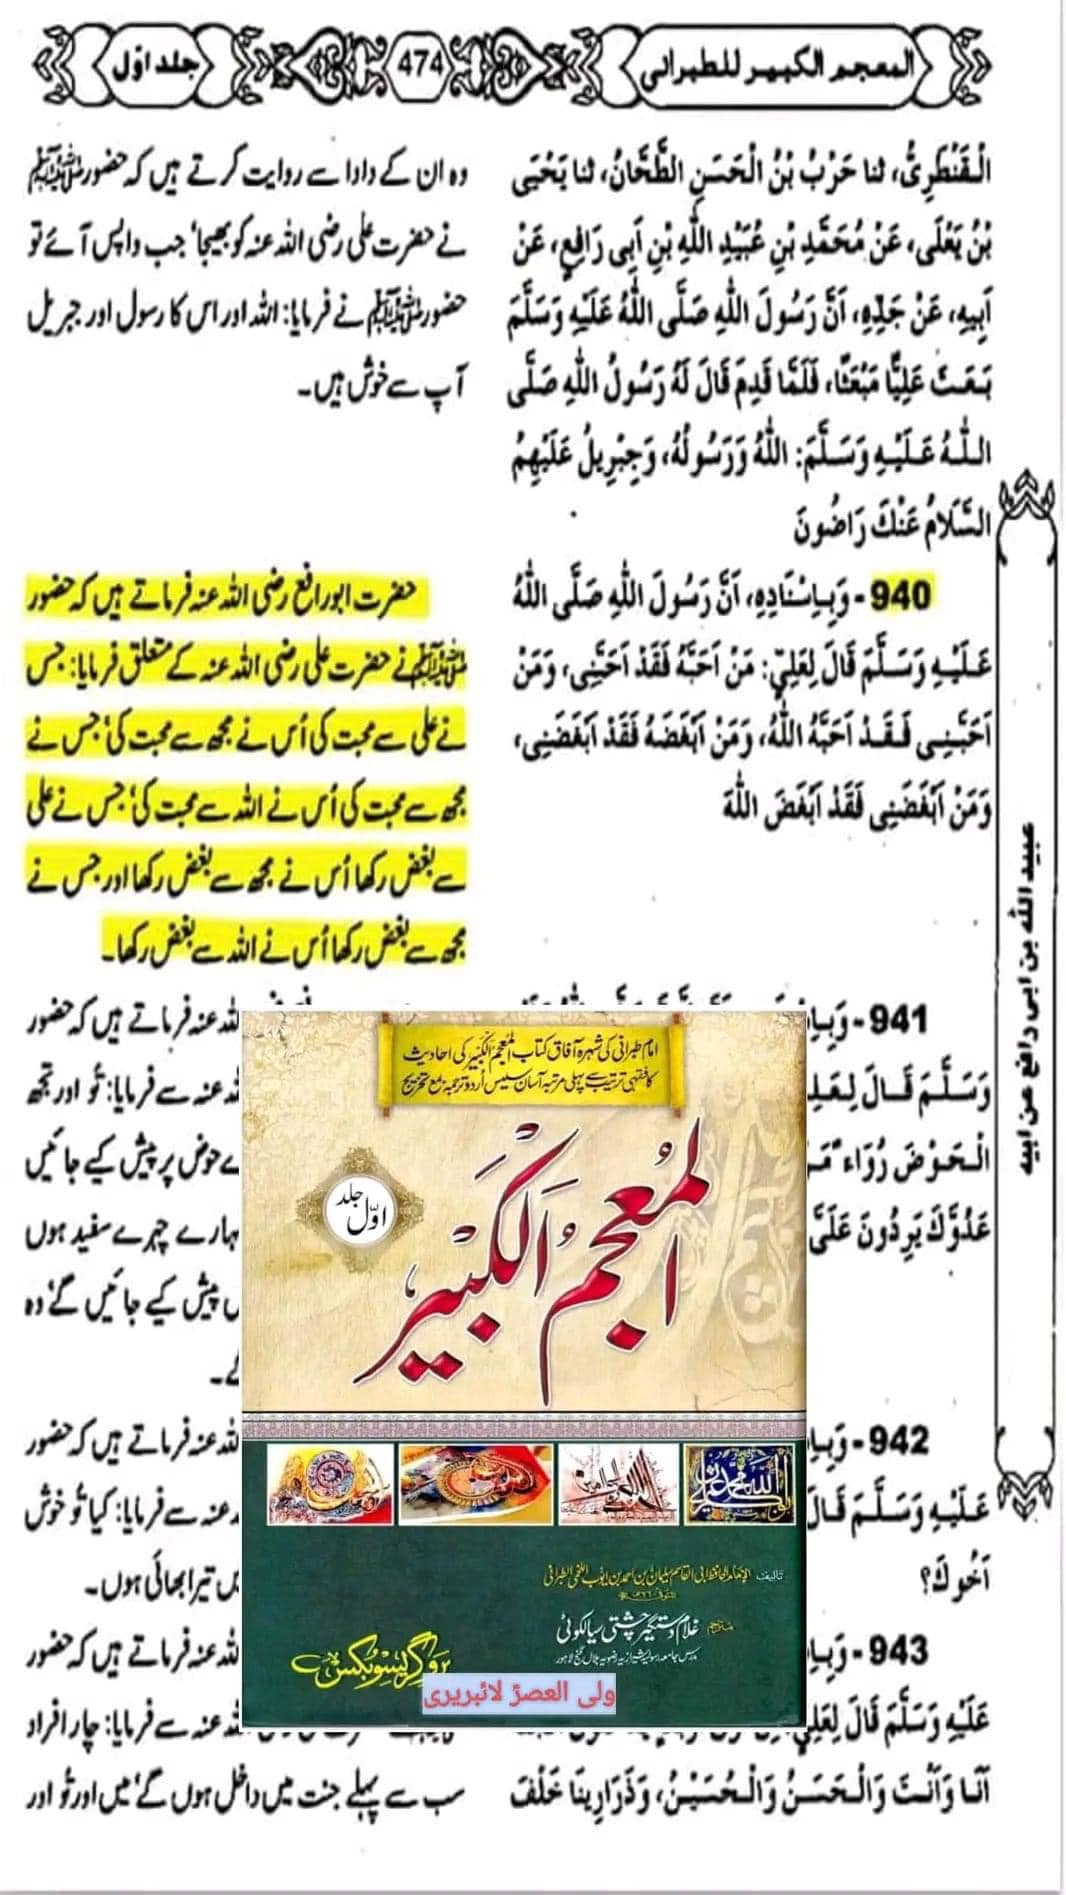 المعجم الكبير للطبرانى
474
جلد اوّل
الْقَنْطَرِىُّ، ثنا حَرْبُ بْنُ الْحَسَنِ الطَّحَّانُ، ثنا يَحْيَى
بْنُ يَعْلَى، عَنْ مُحَمَّدِ بْنِ عُبَيْدِ اللّٰهِ بْنِ اَبِى رَافِعٍ، عَنْ
اَبِيهِ، عَنْ جَدِّهِ، اَنَّ رَسُولَ اللّٰهِ صَلَّى اللّٰهُ عَلَيْهِ وَسَلَّمَ
بَعَثَ عَلِيًّا مَبْعَثًا، فَلَمَّا قَدِمَ قَالَ لَهُ رَسُولُ اللّٰهِ صَلَّى
اللّٰهُ عَلَيْهِ وَسَلَّمَ: اللّٰهُ وَرَسُولُهُ، وَجِبْرِيلُ عَلَيْهِمُ
السَّلَامُ عَنْكَ رَاضُونَ
940 - وَبِاِسْنَادِهِ، اَنَّ رَسُولَ اللّٰهِ صَلَّى اللّٰهُ
عَلَيْهِ وَسَلَّمَ قَالَ لِعَلِيٍّ: مَنْ اَحَبَّهُ فَقَدْ اَحَبَّنِى، وَمَنْ
اَحَبَّنِى فَقَدْ اَحَبَّهُ اللّٰهُ، وَمَنْ اَبْغَضَهُ فَقَدْ اَبْغَضَنِى،
وَمَنْ اَبْغَضَنِى فَقَدْ اَبْغَضَ اللّٰهَ
941 - وَبِاِ
وَسَلَّمَ قَالَ لِعَلِ
الْحَوْضَ رُوَاءً مَ
عَدُوَّكَ يَرِدُونَ عَلَىَّ
942 - وَبِاِ
عَلَيْهِ وَسَلَّمَ قَالَ
اَخُوكَ؟
943 - وَبِاِ
عَلَيْهِ وَسَلَّمَ قَالَ لِعَلِيٍّ
اَنَا وَاَنْتَ وَالْحَسَنُ وَالْحُسَيْنُ، وَذَرَارِينَا خَلْفَ
وہ ان کے دادا سے روایت کرتے ہیں کہ حضور ﷺ
نے حضرت علی رضی اللہ عنہ کو بھیجا، جب واپس آئے تو
حضور ﷺ نے فرمایا: اللہ اور اس کا رسول اور جبریل
آپ سے خوش ہیں۔
حضرت ابورافع رضی اللہ عنہ فرماتے ہیں کہ حضور
ﷺ نے حضرت علی رضی اللہ عنہ کے متعلق فرمایا: جس
نے علی سے محبت کی اُس نے مجھ سے محبت کی، جس نے
مجھ سے محبت کی اُس نے اللہ سے محبت کی، جس نے علی
سے بغض رکھا اُس نے مجھ سے بغض رکھا اور جس نے
مجھ سے بغض رکھا اُس نے اللہ سے بغض رکھا۔
للہ عنہ فرماتے ہیں کہ حضور
عنہ سے فرمایا: تُو اور تجھ
ے حوض پر پیش کیے جائیں
ہارے چہرے سفید ہوں
پیش کیے جائیں گے، وہ
گے۔
للہ عنہ فرماتے ہیں کہ حضور
عنہ سے فرمایا: کیا تُو خوش
تیرا بھائی ہوں۔
للہ عنہ فرماتے ہیں کہ حضور
عنہ سے فرمایا: چار افراد
سب سے پہلے جنت میں داخل ہوں گے، میں اور تُو اور
عبيد الله بن ابى رافع عن ابيه
امام طبرانی کی شہرہ آفاق کتاب المعجم الکبیر کی احادیث
کا فقہی ترتیب سے پہلی مرتبہ آسان سلیس اُردو ترجمہ بمع تخریج
المُعجم الكَبير
جلد اوّل
تالیف
الامام الحافظ ابی القاسم سلیمان بن احمد بن ایوب اللخمی الطبرانی
مترجم
غلام دستگیر چشتی سیالکوٹی
پروگریسو بکس
ولی العصرؑ لائبریری